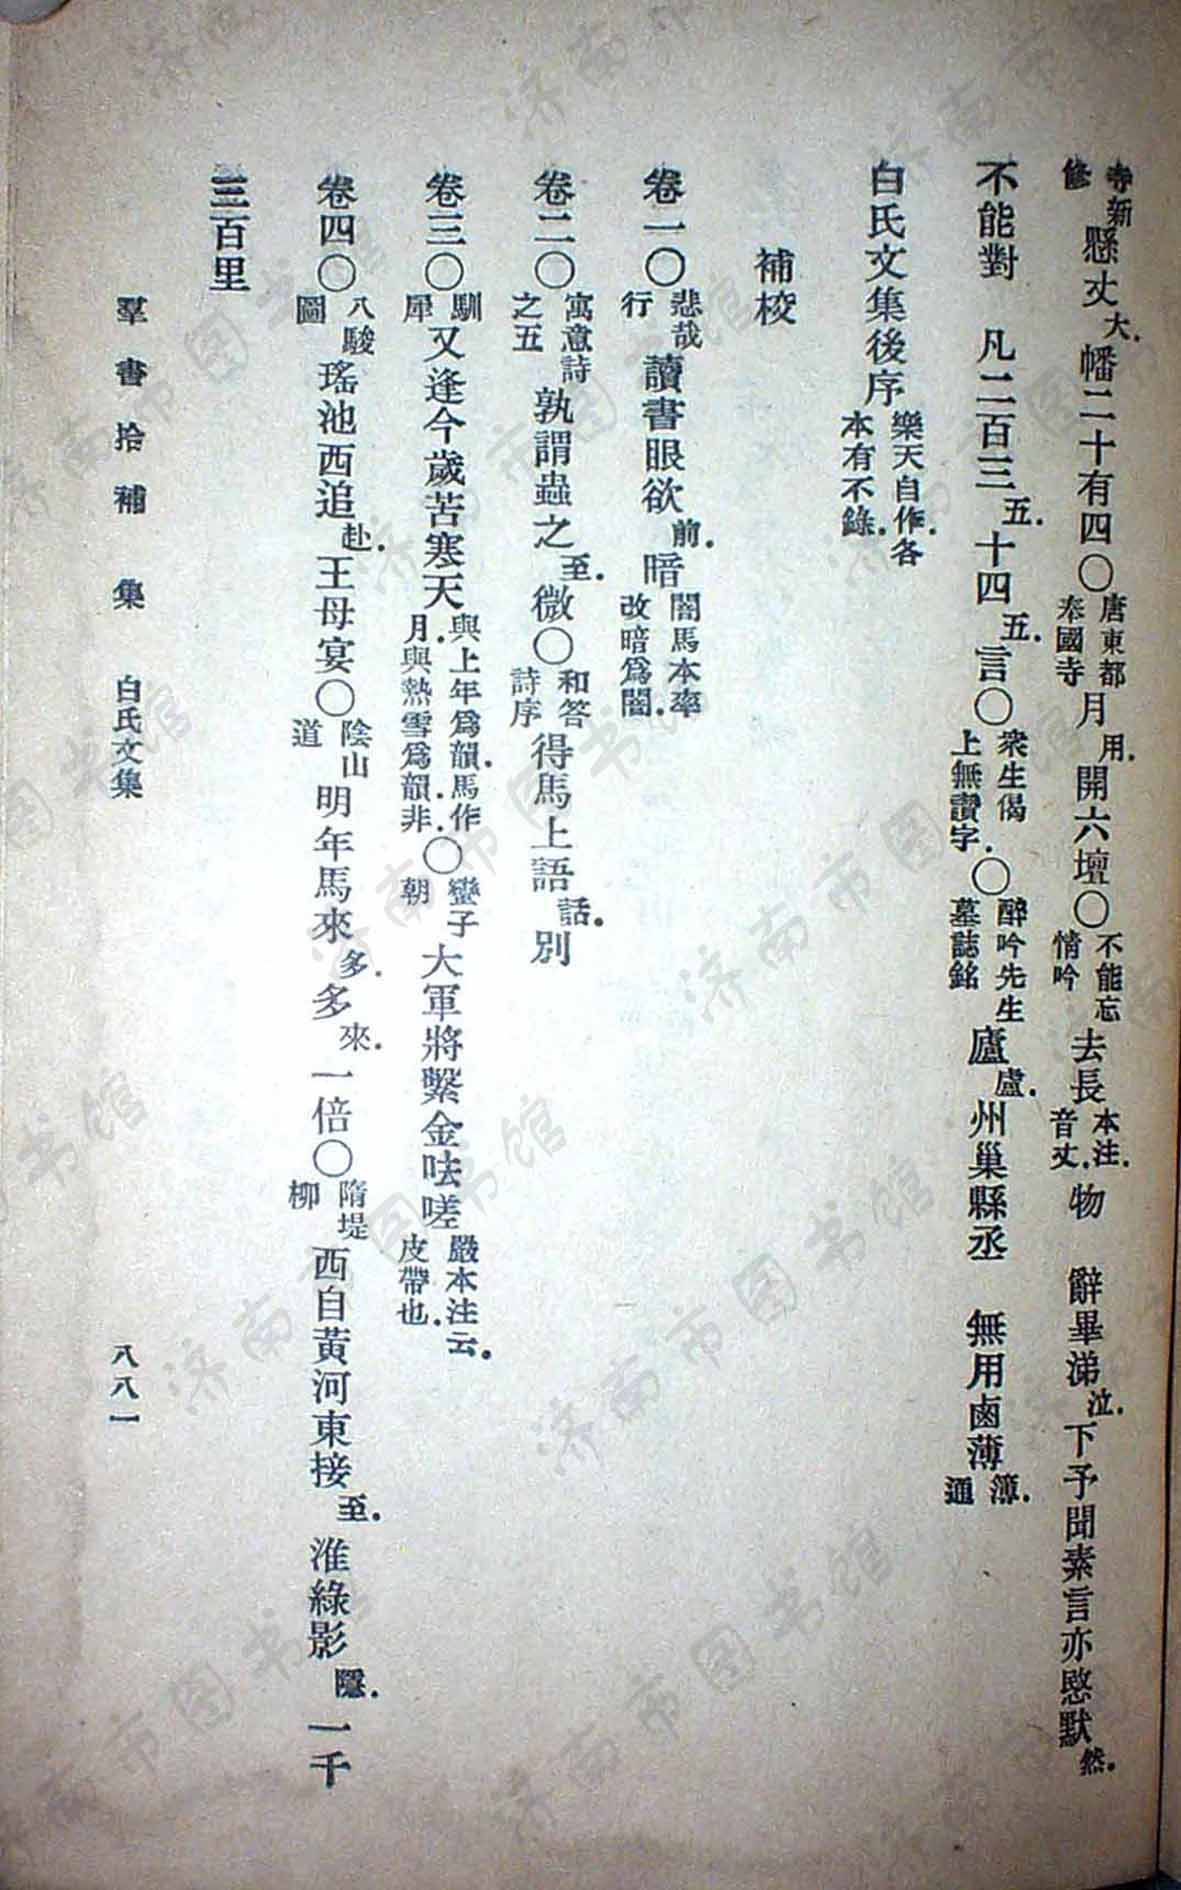 寺新修懸丈大.幡二十有四○唐東都奉國寺月用.開六壇○不能忘情吟去長本注.音丈.物　辭畢涕泣.下予聞素言亦愍默然.
不能對　凡二百三五.十四五.言○衆生偈上無讚字.○醉吟先生墓誌銘廬盧.州巢縣丞　無用鹵薄簿.通
白氏文集後序樂天自作.各本有不錄.
補校
卷一○悲哉行讀書眼欲前.暗闇馬本率改暗爲闇.
卷二○寓意詩之五孰謂蟲之至.微○和答詩序得馬上語話.別
卷三○馴犀又逢今歲苦寒天與上年爲韻.馬作月.與熱雪爲韻.非.○蠻子朝大軍將繫金呿嗟嚴本注云.皮帶也.
卷四○八駿圖瑤池西追赴.王母宴○陰山道明年馬來多.多來.一倍○隋堤柳西自黃河東接至.淮綠影隱.一千
三百里
羣書拾補　集　白氏文集　八八一
济南市图书馆